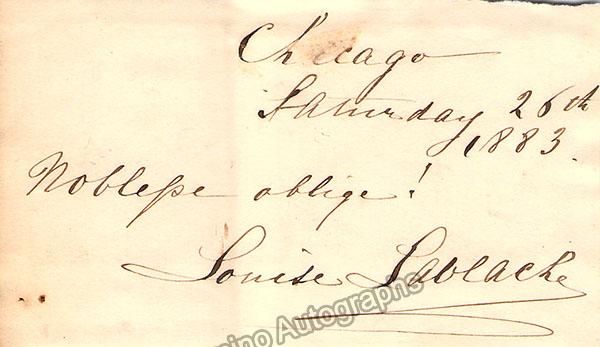 Chicago
Saturday 26th
1883.
Noblesse oblige!
Louise Lablache
ino Autographs